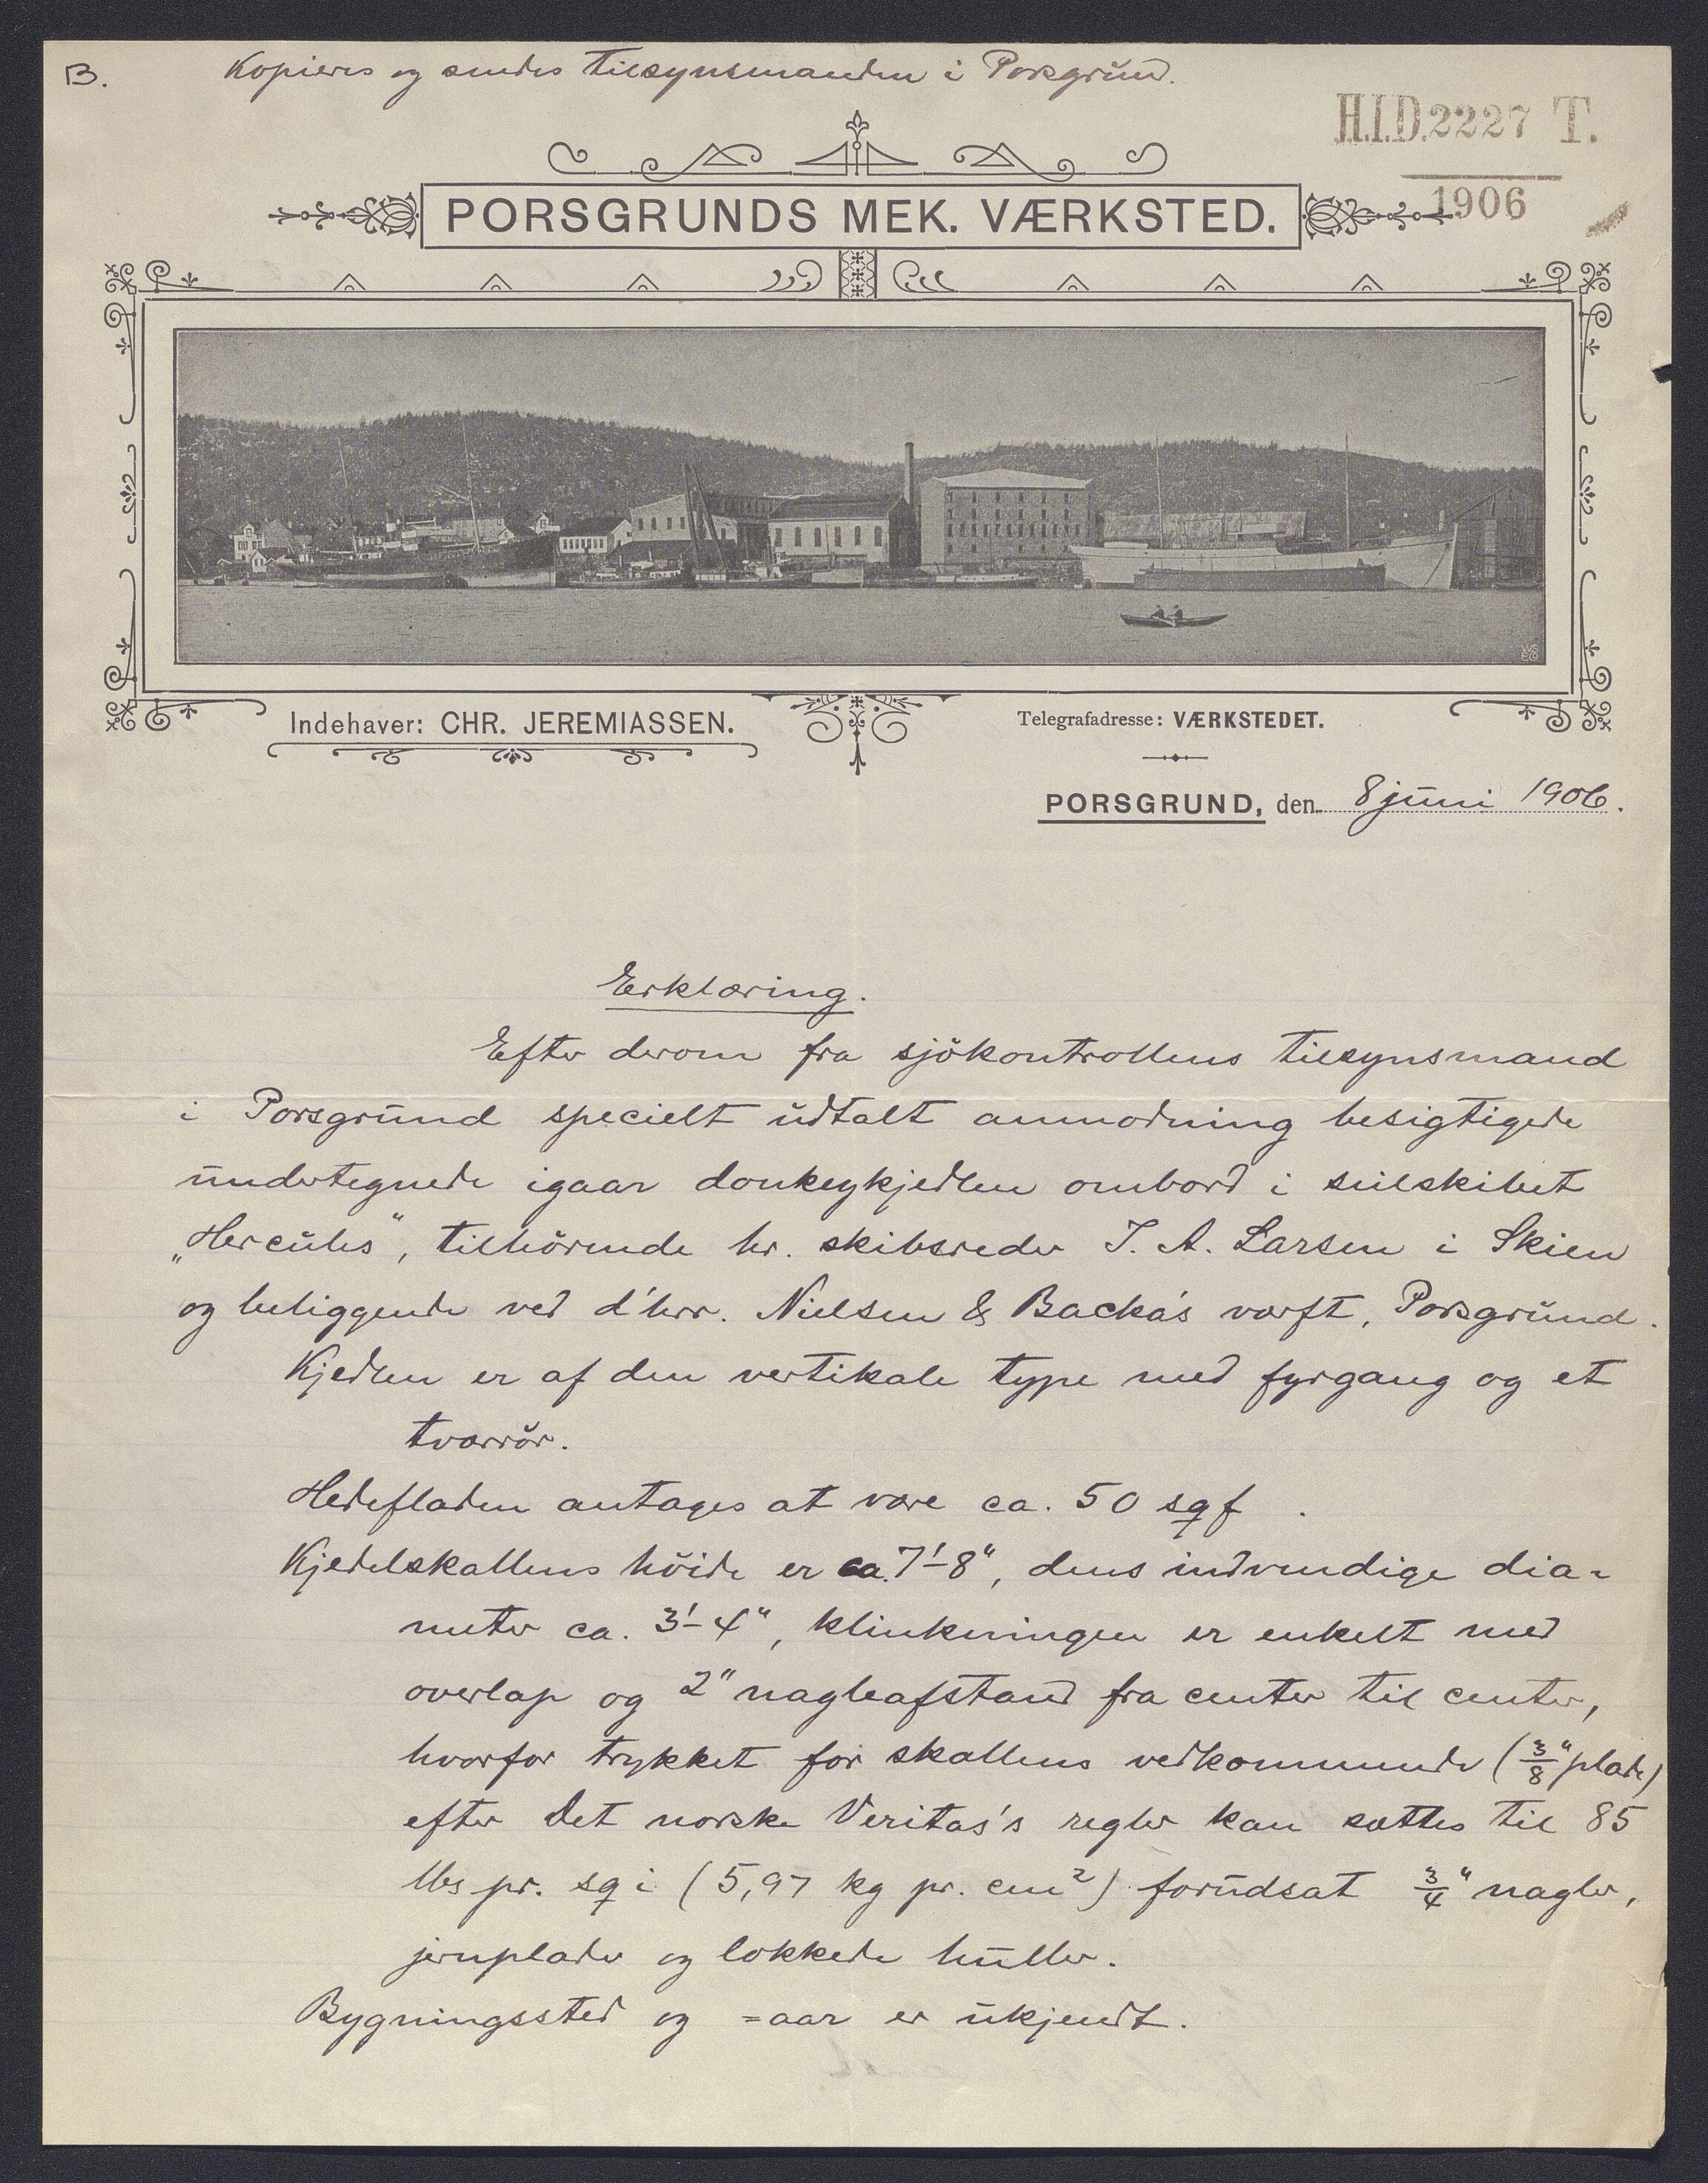 B. Kopieres og sendes tilsynsmanden i Porsgrund.
H.I.D. 2227 T.
1906
PORSGRUNDS MEK. VÆRKSTED.
Indehaver: CHR. JEREMIASSEN.
Telegrafadresse: VÆRKSTEDET.
PORSGRUND, den 8 juni 1906.
Erklæring.
Efter derom fra sjökontrollens tilsynsmand
i Porsgrund specielt udtalt anmodning besigtigede
undertegnede igaar donkeykjedlen ombord i seilskibet
„Hercules", tilhörende hr. skibsreder J. A. Larsen i Skien
og beliggende ved d'hrr. Nielsen & Backa's værft, Porsgrund.
Kjedlen er af den vertikale type med fyrgang og et
tværrör.
Hedefladen antages at være ca. 50 sqf.
Kjedelskallens höide er ca. 7'-8", dens indvendige dia-
meter ca. 3'-4", klinkningen er enkelt med
overlap og 2" nagleafstand fra center til center,
hvorfor trykket for skallens vedkommende (3/8" plade)
efter Det norske Veritas's regler kan sættes til 85
lbs pr. sq i (5,97 kg pr. cm²) forudsat 3/4" nagler,
jernplader og lokkede huller.
Bygningssted og =aar er ukjendt.